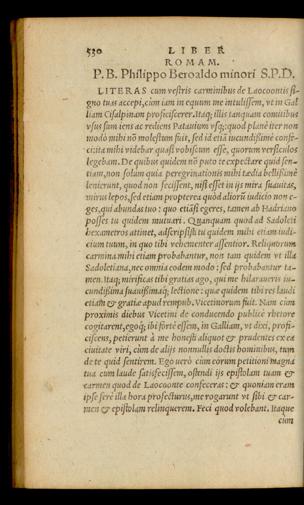 530 LIBER
ROMAM.
P. B. Philippo Beroaldo minori S.P.D.
LITERAS cum vestris carminibus de Laocoontis si-
gno tuas accepi, cùm iam in equum me intulissem, vt in Gal
liam Cisalpinam proficiscerer. Itaq; illis tanquam comitibus
vsus sum iens ac rediens Patauium vsq; quod planè iter non
modò mihi nō molestum fuit, sed id etiā iucundissimè confe-
cit: ita mihi videbar quasi vobiscum esse, quorum versiculos
legebam. De quibus quidem nō puto te expectare quid sen-
tiam, non solùm quia peregrinationis mihi tædia bellissimè
lenierunt, quod non fecissent, nisi esset in ijs mira suauitas,
mirus lepos, sed etiam propterea quòd aliorū iudicio non e-
ges, qui abundas tuo: quo etiāsi egeres, tamen ab Hadriano
posses tu quidem mutuari. Quanquam quod ad Sadoleti
hexametros attinet, adscripsisti tu quidem mihi etiam iudi-
cium tuum, in quo tibi vehementer assentior. Reliquorum
carmina mihi etiam probabantur, non tam quidem vt illa
Sadoletiana, nec omnia eodem modo: sed probabantur ta-
men. Itaq; mirificas tibi gratias ago, qui me hilaraueris iu-
cundissima suauissimaq; lectione: quæ quidem tibi res laudi
etiam & gratiæ apud rempub. Vicetinorum fuit. Nam cùm
proximis diebus Vicetini de conducendo publicè rhetore
cogitarent, egoq; ibi fortè essem, in Galliam, vt dixi, profi-
ciscens, petierunt à me honesti aliquot & prudentes ex ea
ciuitate viri, cùm de alijs nonnullis doctis hominibus, tum
de te quid sentirem. Ego verò cùm eorum petitioni magna
tua cum laude satisfecissem, ostendi ijs epistolam tuam &
carmen quod de Laocoonte confeceras: & quoniam eram
ipse ferè illa hora profecturus, me rogarunt vt sibi & car-
men & epistolam relinquerem. Feci quod volebant. Itaque
cùm